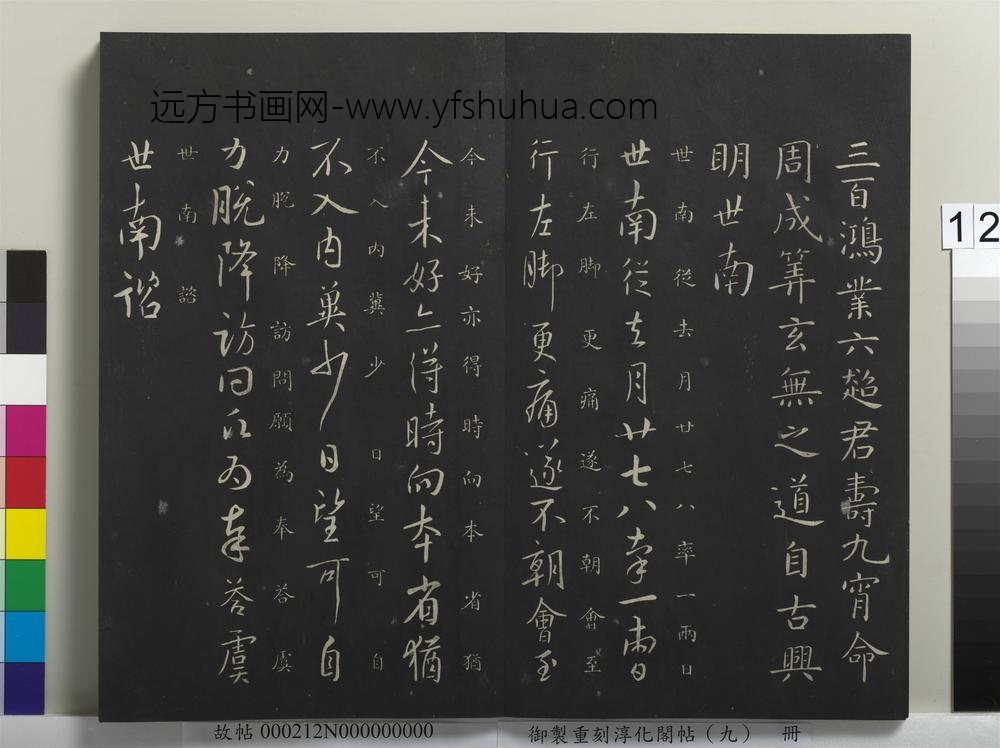 远方书画网-www.yfshuhua.com
三百鴻業六超君壽九宵命
周成筭玄無之道自古興
明世南
世南從去月廿七八率一兩日
世南從去月廿七八率一兩日
行左脚更痛遂不朝會至
行左脚更痛遂不朝會至
今未好亦得時向本省猶
今未好亦得時向本省猶
不入內冀少日望可自
不入內冀少日望可自
力脫降訪問願為奉荅虞
力脫降訪問願為奉荅虞
世南諮
世南諮
12
故帖 000212N000000000
御製重刻淳化閣帖（九） 冊